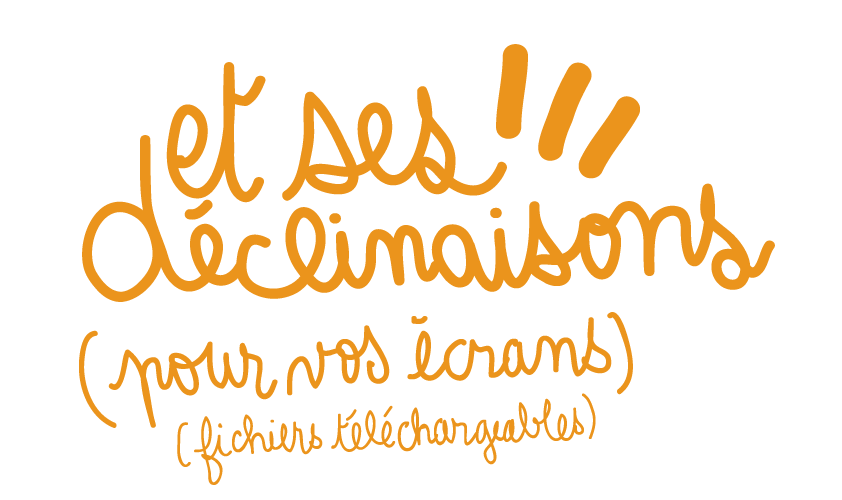 et ses
déclinaisons
(pour vos écrans)
(fichiers téléchargeables)